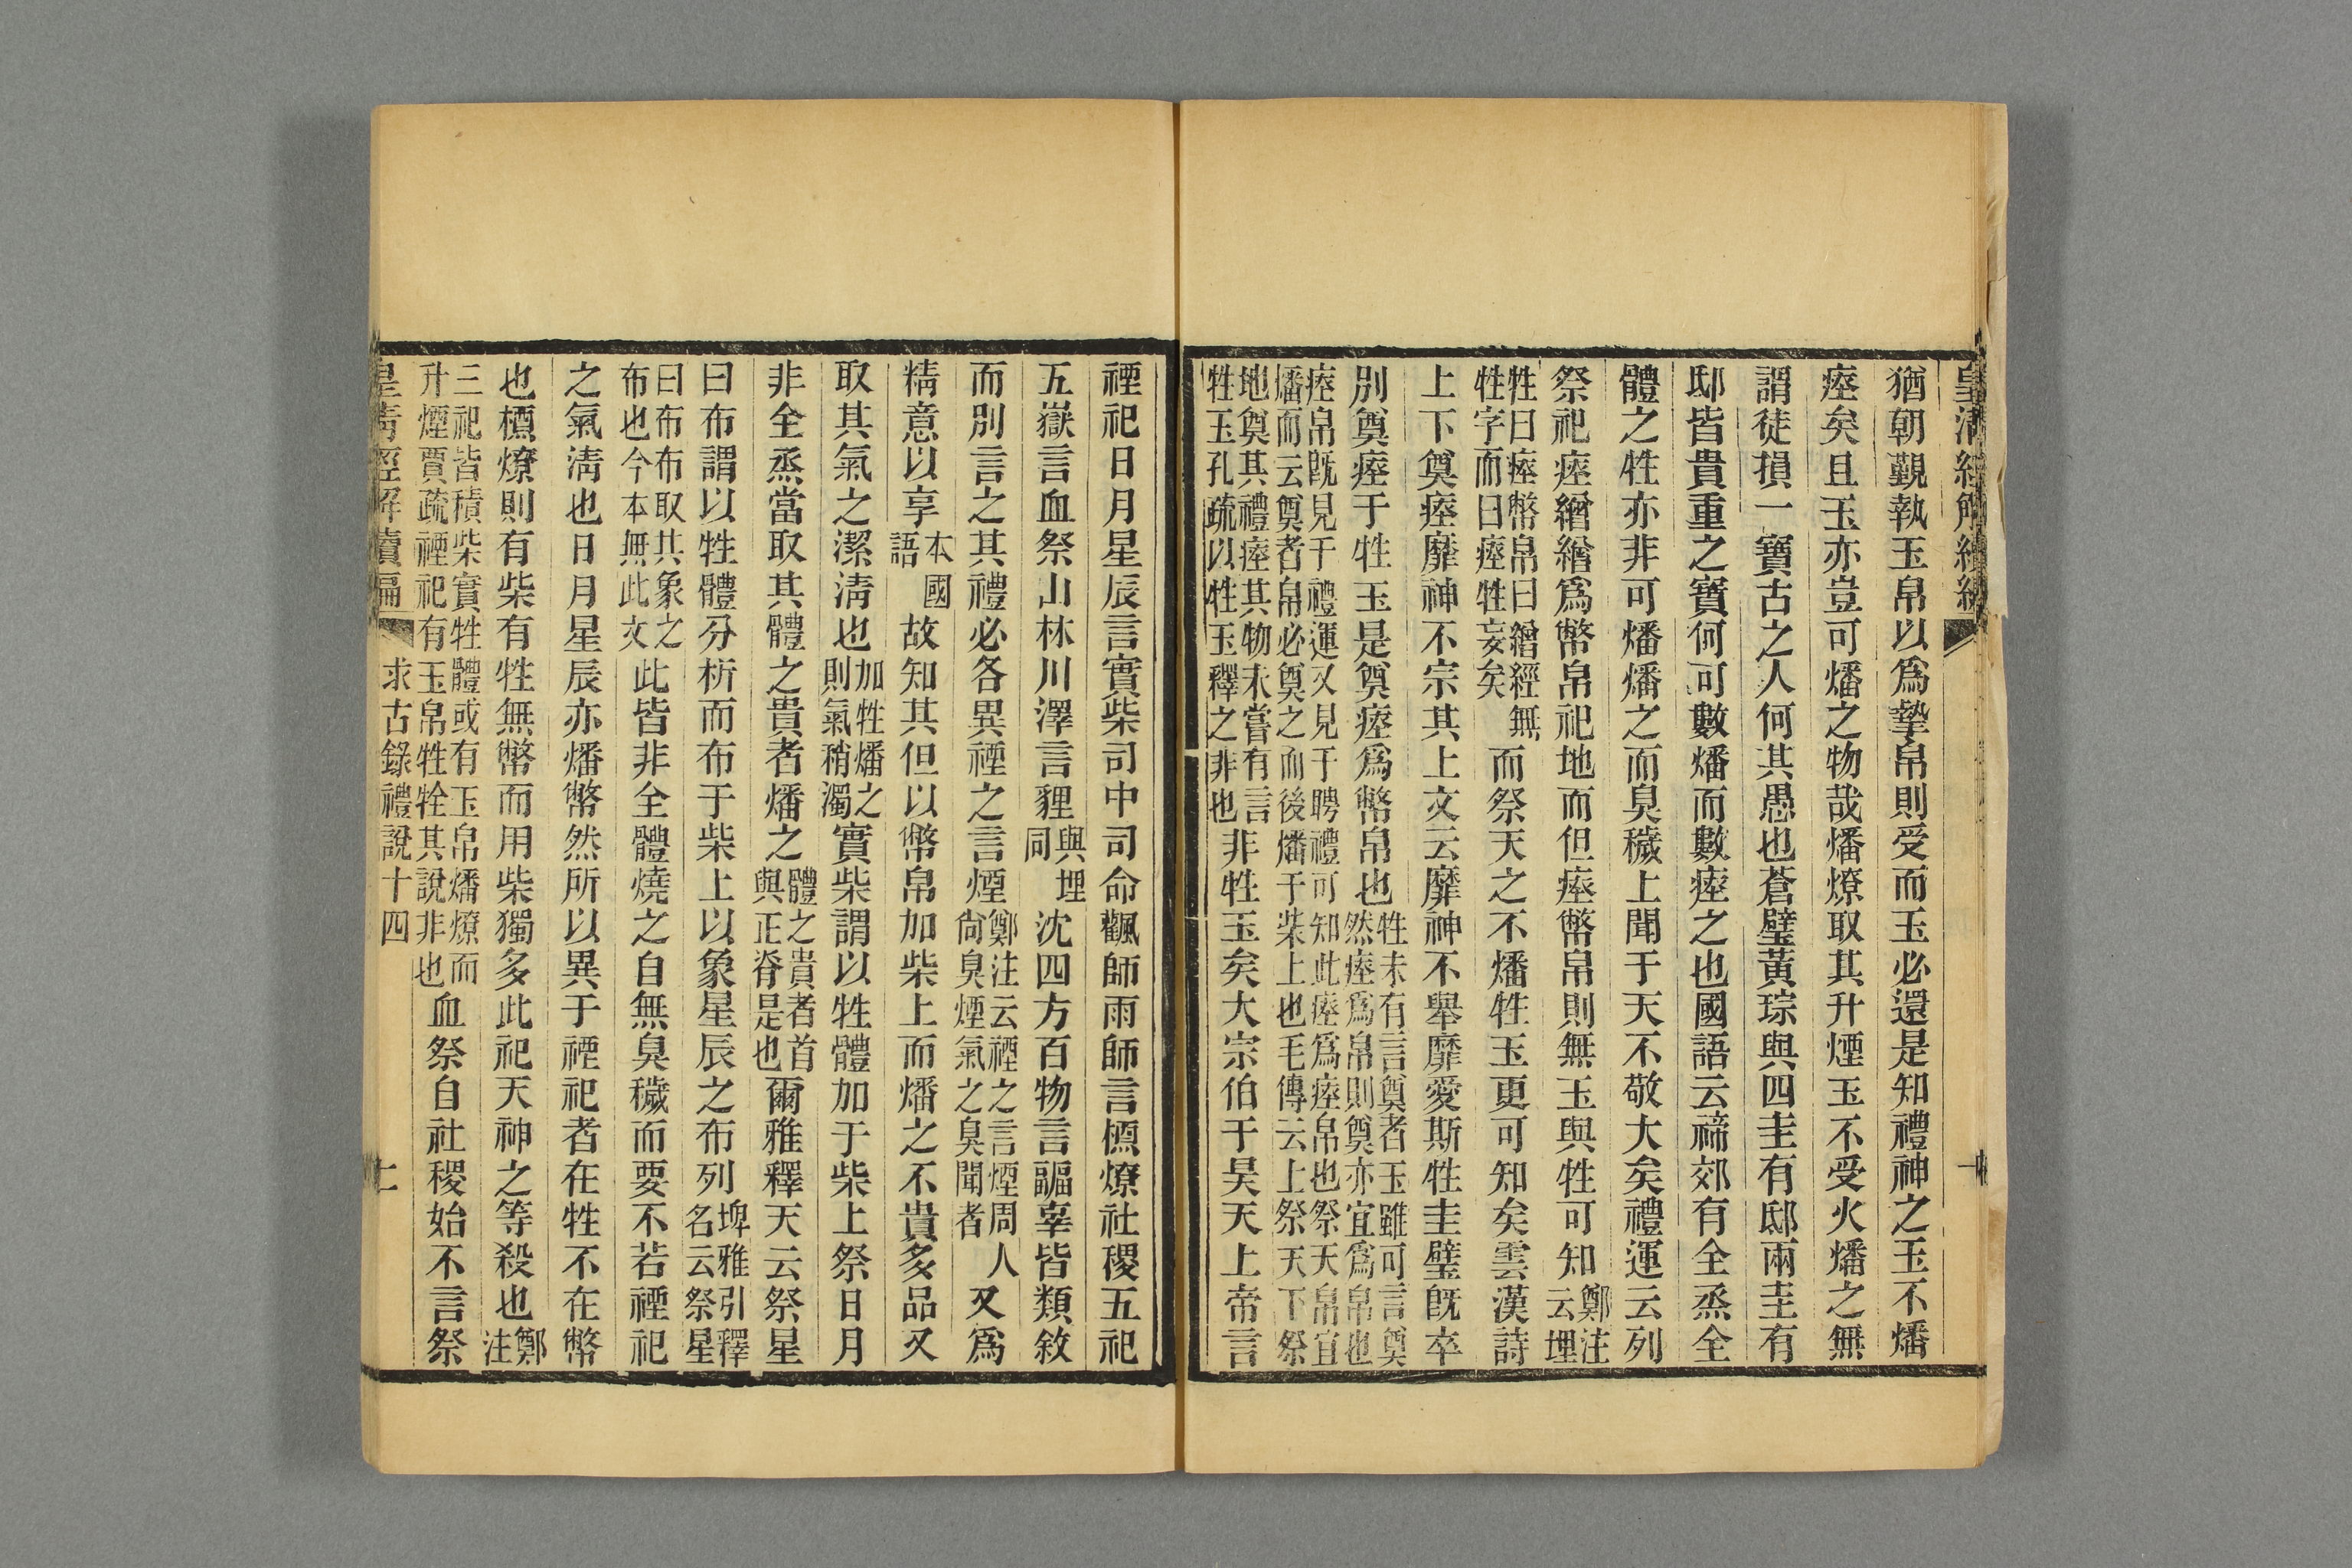 皇清經解續編
猶朝覲執玉帛以爲摯帛則受而玉必還是知禮神之玉不燔
瘞矣且玉亦豈可燔之物哉燔燎取其升煙玉不受火燔之無
謂徒損一寶古之人何其愚也蒼璧黃琮與四圭有邸兩圭有
邸皆貴重之寶何可數燔而數瘞之也國語云禘郊有全烝全
體之牲亦非可燔燔之而臭穢上聞于天不敬大矣禮運云列
祭祀瘞繒繒爲幣帛祀地而但瘞幣帛則無玉與牲可知鄭注云埋
牲曰瘞幣帛曰繒經無牲字而曰瘞牲妄矣而祭天之不燔牲玉更可知矣雲漢詩
上下奠瘞靡神不宗其上文云靡神不舉靡愛斯牲圭璧旣卒
別奠瘞于牲玉是奠瘞爲幣帛也牲未有言奠者玉雖可言奠然瘞爲帛則奠亦宜爲帛也
瘞帛旣見于禮運又見于聘禮可知此瘞爲瘞帛也祭天帛宜燔而云奠者帛必奠之而後燔于柴上也毛傳云上祭天下祭
地奠其禮瘞其物未嘗有言牲玉孔疏以牲玉釋之非也非牲玉矣大宗伯于昊天上帝言
禋祀日月星辰言實柴司中司命飌師雨師言槱燎社稷五祀
五嶽言血祭山林川澤言貍與埋同沈四方百物言疈辜皆類敘
而別言之其禮必各異禋之言煙鄭注云禋之言煙周人尙臭煙氣之臭聞者又爲
精意以享本國語故知其但以幣帛加柴上而燔之不貴多品又
取其氣之潔淸也加牲燔之則氣稍濁實柴謂以牲體加于柴上祭日月
非全烝當取其體之貴者燔之體之貴者首與正脊是也爾雅釋天云祭星
曰布謂以牲體分析而布于柴上以象星辰之布列埤雅引釋名云祭星
曰布布取其象之布也今本無此文此皆非全體燒之自無臭穢而要不若禋祀
之氣淸也日月星辰亦燔幣然所以異于禋祀者在牲不在幣
也槱燎則有柴有牲無幣而用柴獨多此祀天神之等殺也鄭注
三祀皆積柴實牲體或有玉帛燔燎而升煙賈疏禋祀有玉帛牲牷其說非也血祭自社稷始不言祭
皇淸經解續編 求古錄禮說十四